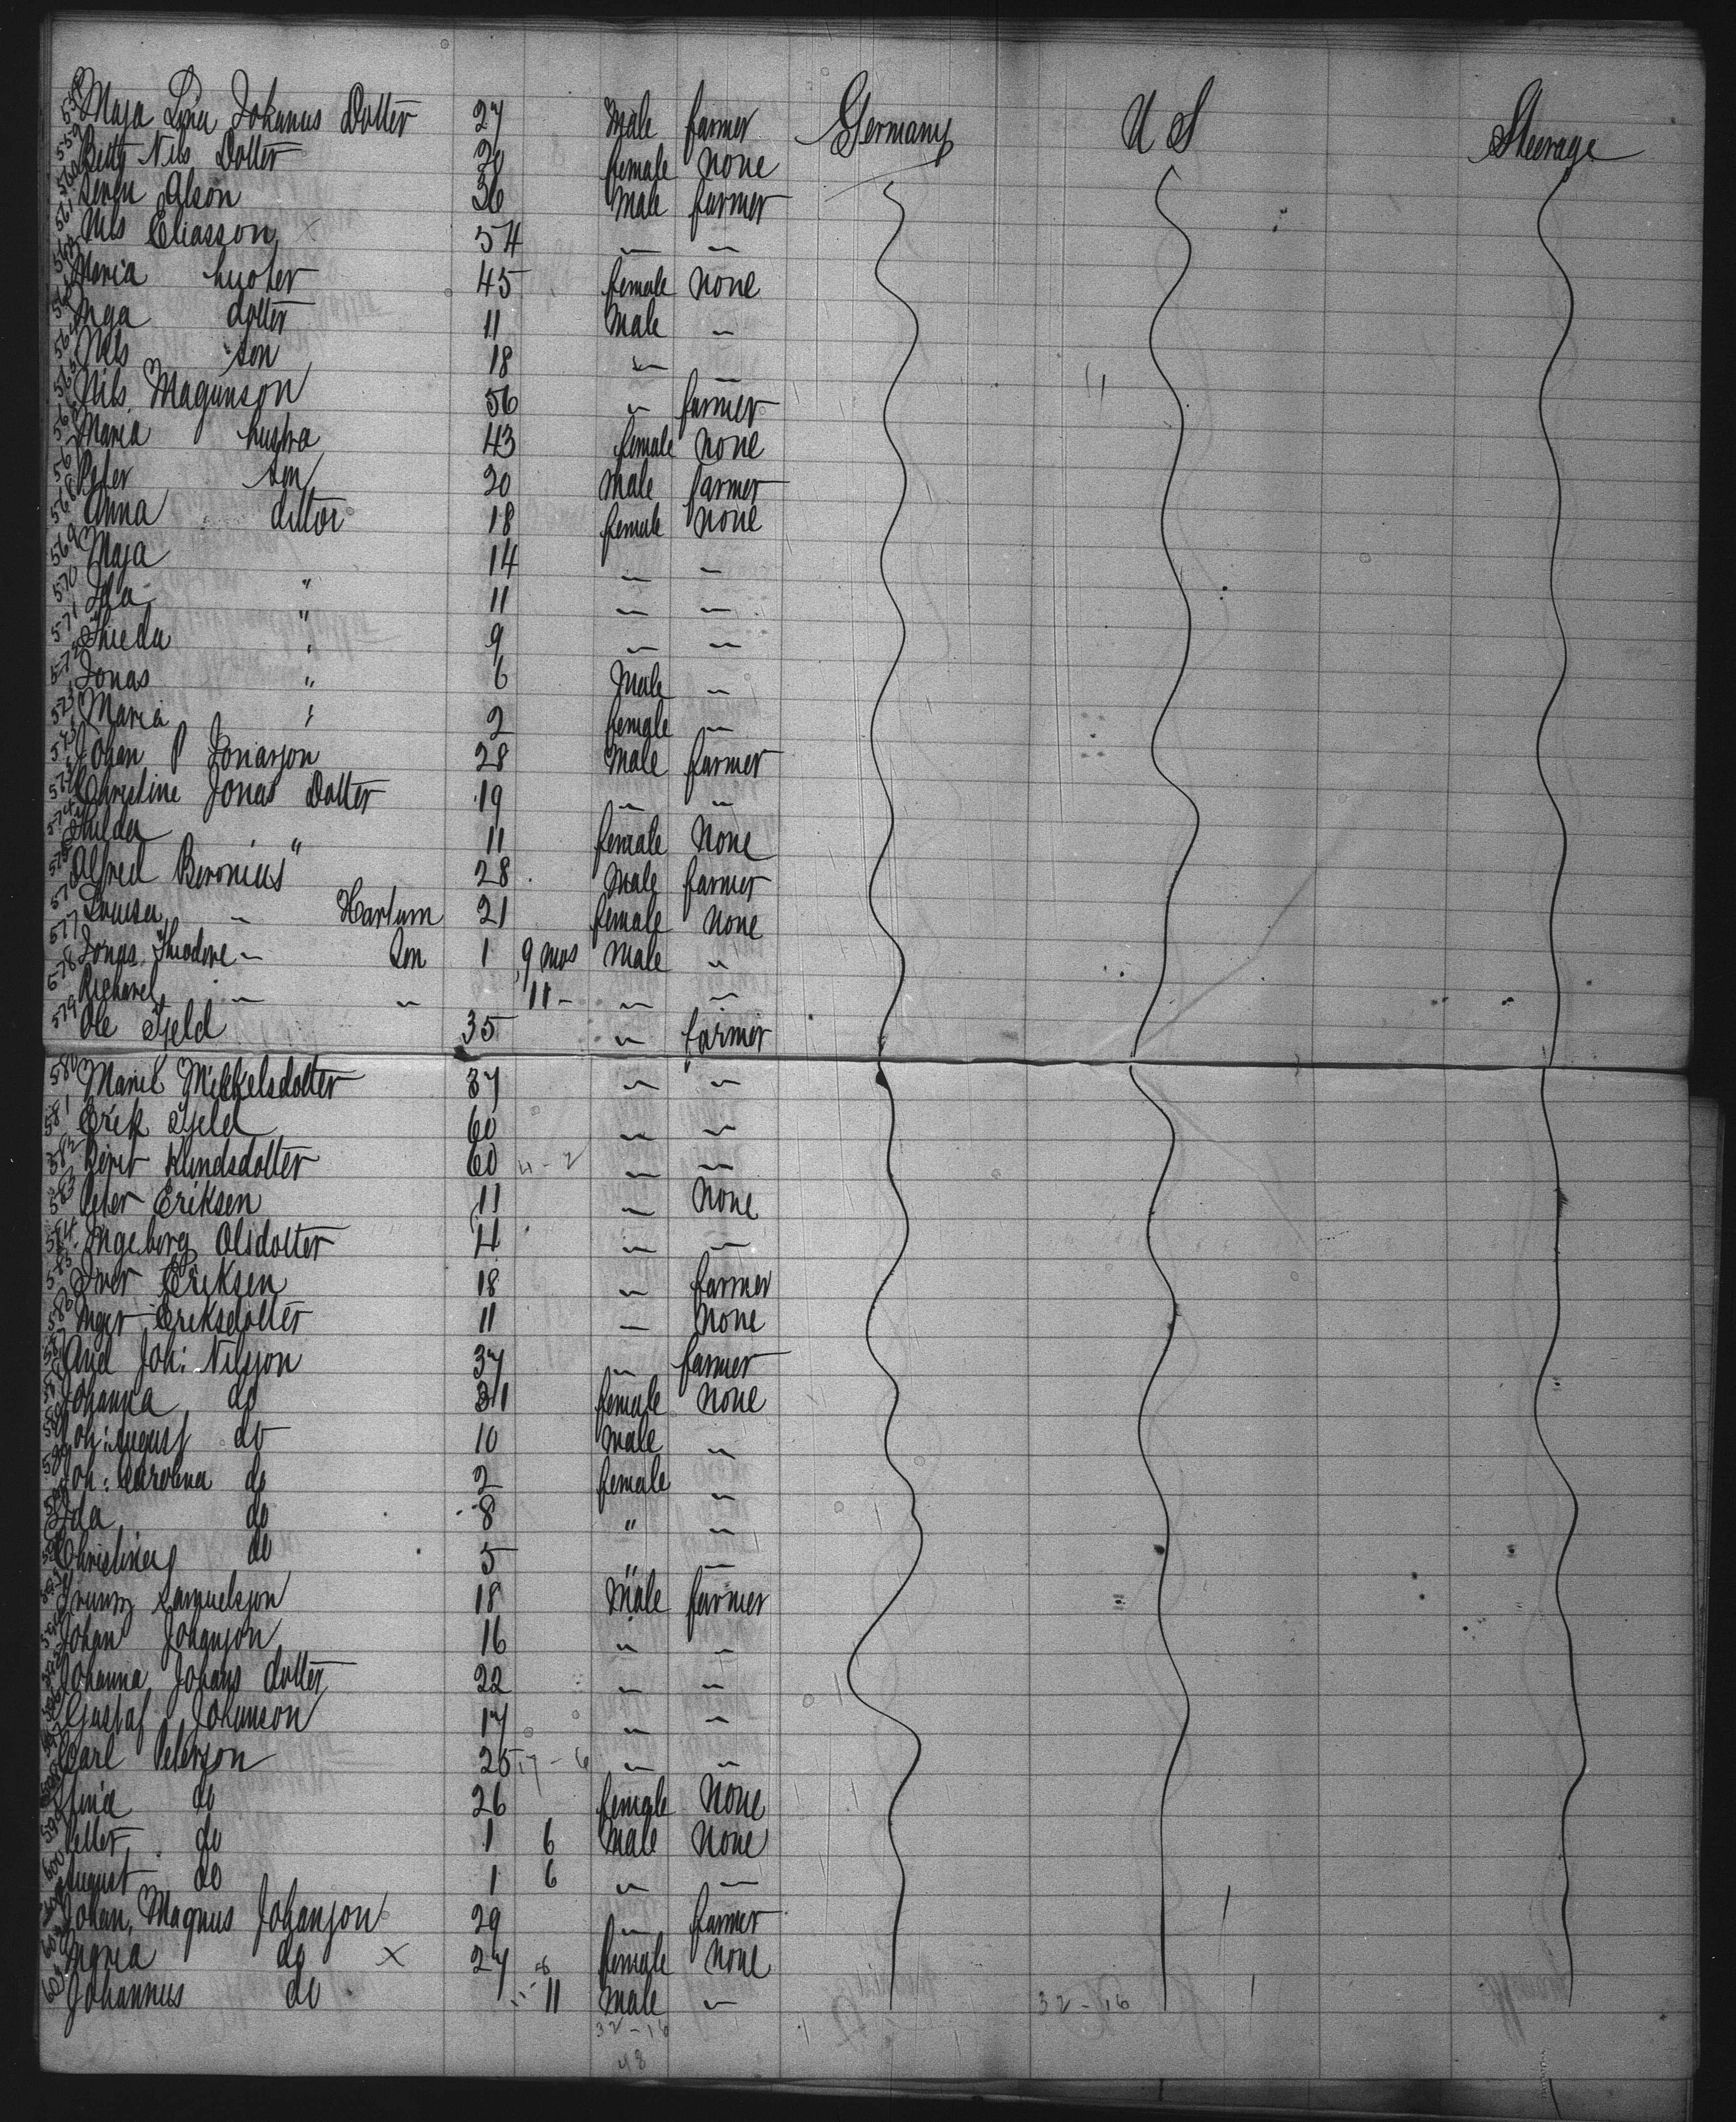 558 Maja Lina Johanus Dotter 27 Male farmer Germany U S Steerage
559 Betty Nils Dotter 28 female none
560 Olson 36 Male farmer
561 Nils Eliasson × 54 " "
562 Maria 45 female none
563 Inga dotter 11 Male "
564 Nils son 18 " "
565 Nils Magunson 56 " farmer
566 Maria hustra 43 female none
567 Peter son 20 Male farmer
568 Anna dotter 18 female none
569 Maja 14 " "
570 Ida " 11 " "
571 " 9 " "
572 Jonas " 6 Male "
573 Maria " 2 female "
573 Johan P Jonasson 28 Male farmer
Christine Jonas Dotter 19 " "
574 Hulda " 11 female None
575 Alfred Beronius 28 Male farmer
576 Louisa " 21 female none
577 Jonas Theodore " Son 1 9 mos Male "
578 Richard " " 11 " " "
579 Ole 35 " farmer
580 Marit Mikkelsdotter 37 " "
581 Erik 60 " "
582 Beret 60 4-2 " "
583 Peter Eriksen 11 " None
584 Ingeborg Olsdotter 4 " "
585 Iver Eriksen 18 " farmer
586 Inger Eriksdotter 11 " None
587 And Joh: Nilsson 37 " farmer
Johanna do 31 female none
Joh: August do 10 Male "
589 Joh: Carolina do 2 female "
Ida do 8 " "
Christina do 5 " "
Samuelsson 18 Male farmer
Johan Johanson 16 " "
Johanna Johans dotter 22 " "
Gustaf Johanson 17 " "
Carl Peterson 25 17-6 " "
do 26 female None
599 Petter do 1 6 Male None
600 August do 1 6 " "
Johan Magnus Johanson 29 " farmer
Maria do × 27 female none
Johannus do 11 Male "
32-16 32-16
48